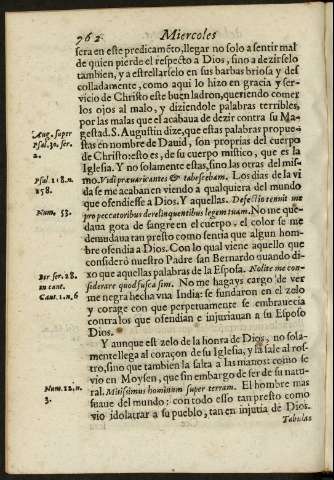 762 Miercoles
sera en este predicamẽto, llegar no solo a sentir mal
de quien pierde el respecto a Dios, sino a dezirselo
tambien, y a estrellarselo en sus barbas briosa y des
colladamente, como aqui lo hizo en gracia y ser-
vicio de Christo este buen ladron, queriendo comer
los ojos al malo, y diziendole palabras terribles,
por las malas que el acabaua de dezir contra su Ma-
gestad. S. Augustin dize, que estas palabras propue-
stas en nombre de Dauid, son proprias del cuerpo
de Christo: esto es, de su cuerpo mistico, que es la
Iglesia. Y no solamente estas, sino las otras del mis-
mo. Vidi prevaricantes & tabescebam. Los dias de la vi
da se me acaban en viendo a qualquiera del mundo
que ofendiesse a Dios. Y aquellas. Defectio tenuit me
pro peccatoribus derelinquentibus legem tuam. No me que-
daua gota de sangre en el cuerpo, el color se me
demudaua tan presto como sentia que algun hom-
bre ofendia a Dios. Con lo qual viene aquello que
considerò nuestro Padre san Bernardo quando di-
xo que aquellas palabras de la Esposa. Nolite me con-
siderare quod fusca sim. No me hagays cargo de ver
me negra hecha vna India: se fundaron en el zelo
y corage con que perpetuamente se embrauecia
contra los que ofendian e injuriauan a su Esposo
Dios.
Y aunque est zelo de la honra de Dios, no sola-
mente llega al coraçon de su Iglesia, y la sale al ros-
tro, sino que tambien la salta a las manos: como se
vio en Moysen, que sin embargo de ser de su natu-
ral. Mitissimus hominum super terram. El hombre mas
suaue del mundo: con todo esso tan presto como
vio idolatrar a su pueblo, tan en injuria de Dios.
Tabulas
Aug. super
Psal. 30. ser.
2.
Psal. 118. n.
158.
Num. 53.
Ber ser. 28.
in cant.
Cant. 1. n. 6
Num. 12. n.
3.